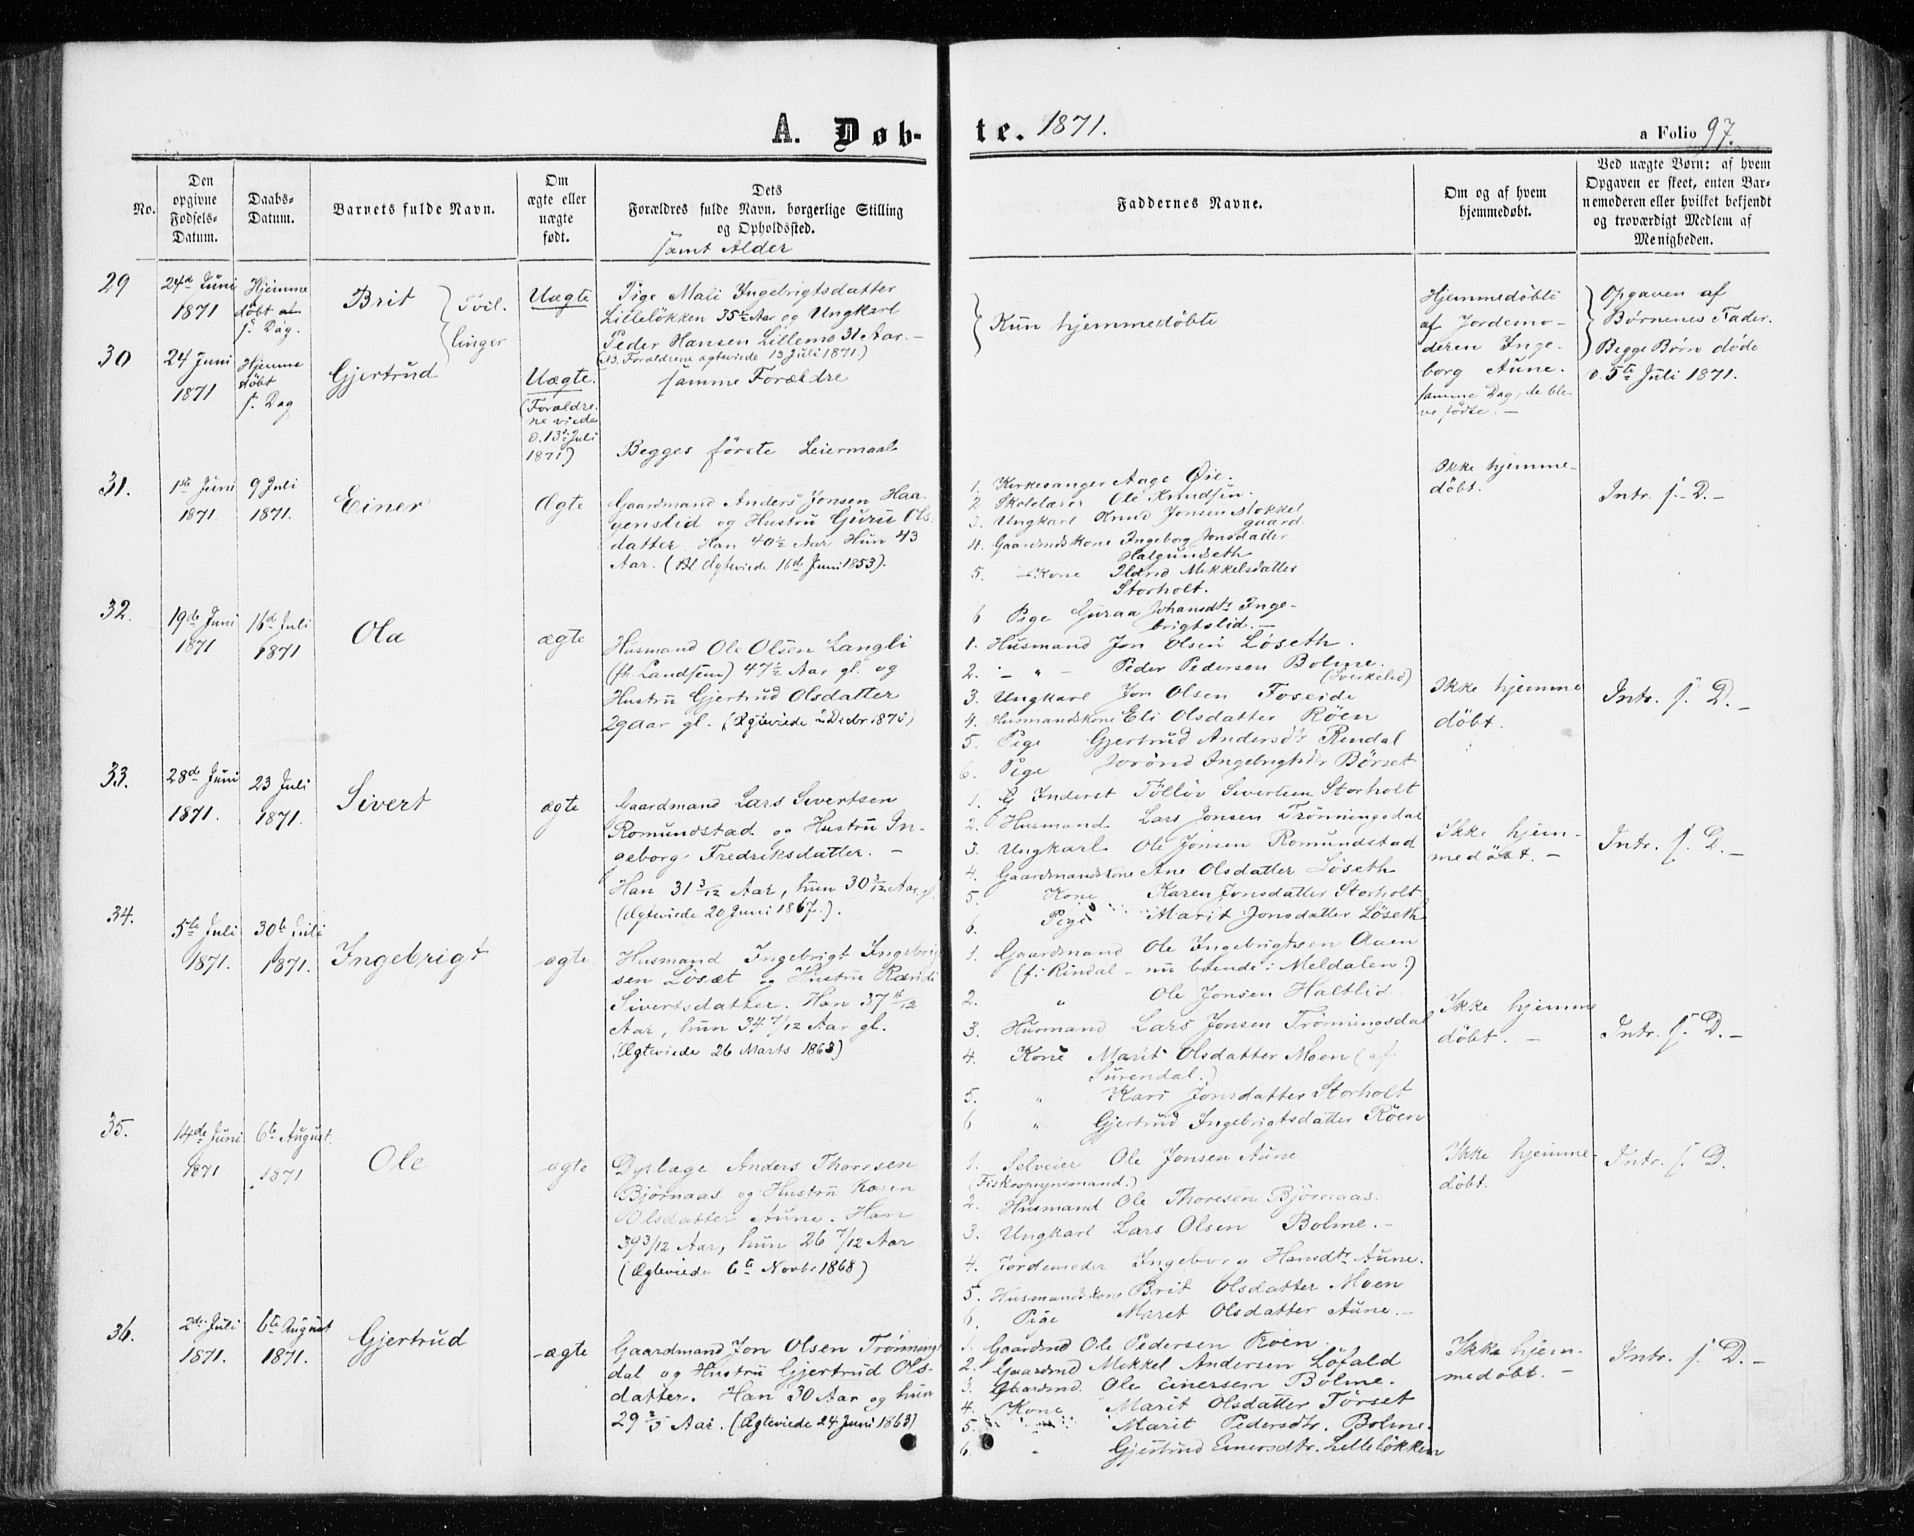 A. Døb-
te. 1871.
a Folio 97.
No.
Den opgivne Fødsels-Datum.
Daabs-Datum.
Barnets fulde Navn.
Om ægte eller uægte født.
Dets Forældres fulde Navn, borgerlige Stilling og Opholdssted.
samt Alder
Faddernes Navne.
Om og af hvem hjemmedøbt.
Ved uægte Børn: af hvem Opgaven er skeet, enten Bar-nemoderen eller hvilket bekjendt og troværdigt Medlem af Menigheden.
29
24d Juni
1871
Hjemme
døbt
s. Dag.
Brit
Tvil-
linger
Uægte
Pige Mali Ingebrigtsdatter
Lilleløkken 35½ Aar og Ungkarl
Peder Hansen Lillemo 31 Aar. –
(NB. Forældrene ægteviede 13 Juli 1871.)
Kun hjemmedøbte
Hjemmedøbte
af Jordemo-
deren Inge-
borg Aune.
samme Dag, de ble-
ve fødte. –
Opgaven af
Børnenes Fader.
Begge Børn døde
d. 5te Juli 1871.
30
24 Juni
1871
Hjemme
døbt
s. Dag
Gjertrud
Uægte.
(Forældre-
ne viede
d. 13de Juli
1871)
samme Forældre
Begges første Leiermaal
31.
1ste Juni
1871.
9 Juli
1871.
Einer
Ægte
Gaardmand Anders Jonsen Haa-
genslid og Hustru Guru Ols-
datter. Han 40½ Aar Hun 43
Aar. (Ægteviede 16de Juni 1853).
1. Kirkesanger Aage Øie.
2 Skolelærer Ole Knudsen.
3. Ungkarl Knud Jonsen Mokkel
gaard.
4. Gaardmdskone Ingeborg Jonsdatter
Halgundseth
5. – Kone Ildrid Mekkelsdatter
Storholt.
6 Pige Guraa Johansdtr Inge-
brigtslid. –
Ikke hjemme-
døbt.
Intr. s. D. –
32.
19de Juni
1871
16d Juli
1871
Ola
ægte
Husmand Ole Olsen Langli
(fh. Landsem) 47½ Aar gl. og
Hustru Gjertrud Olsdatter
29 Aar gl. (Ægteviede 2 Decbr 1870)
1. Husmand Jon Olsen Løseth.
2. – " – Peder Pedersen Bolme.
3. Ungkarl Jon Olsen Foseide
4. Husmandskone Eli Olsdatter Røen
5. Pige Gjertrud Andersdtr Rendal
6. Pige Ingebrigtsdtr Børset
Ikke hjemme
døbt.
Intr. s. D. –
33.
28de Juni
1871.
23 Juli
1871.
Sivert
ægte
Gaardmand Lars Sivertsen
Romundstad og Hustru In-
geborg Fredriksdatter. –
Han 31 3/12 Aar, hun 30 3/12 Aar gl.
(Ægteviede 20 Juni 1867.).
1. Inderst Tølløv Sivertsen Storholt
2. Husmand Lars Jonsen Trønningsdal
3. Ungkarl Ole Jonsen Romundstad
4. Gaardmandskone Ane Olsdatter Løseth
5. Kone Karen Jonsdatter Storholt
6. Pige Marit Jonsdatter Løseth
Ikke hjem-
medøbt. –
Intr. s. D. –
34.
5te Juli
1871.
30te Juli
1871.
Ingebrigt
ægte
Husmand Ingebrigt Ingebrig
sen Løsæt og Hustru Randi
Sivertsdatter. Han 37 4/12
Aar, hun 34 7/12 Aar gl.
(Ægteviede 26 Marts 1863)
1. Gaardmand Ole Ingebrigtsen Aaen
(f. i Rindal – nu boende i Meldalen.)
2. " Ole Jonsen Haltlid
3. Husmand Lars Jonsen Trønningsdal
4. Kone Marit Olsdatter Moen (af
Surendal.)
5. " Kari Jonsdatter Storholt
6 " Gjertrud Ingebrigtsdatter Røen
Ikke hjemme
døbt. –
Intr. s. D. –
35.
14de Juni
1871
6te August.
1871
Ole
ægte
Dyrlæge Anders Thoresen
Bjørnaas og Hustru Karen
Olsdatter Aune. Han
39 3/12 Aar, hun 26 7/12 Aar
(Ægteviede 6te Novbr 1868)
1. Selveier Ole Jonsen Aune
(Fiskeopsynsmand.)
2. Husmand Ole Thoresen Bjørnaas.
3. Ungkarl Lars Olsen Bolme. –
4. Jordemoder Ingeborg Hansdtr Aune.
5. Husmandskone Brit Olsdatter Moen
6. Pige Maret Olsdatter Aune. –
Ikke hjemme-
døbt.
Intr. s. D.
36.
2de Juli
1871.
6te August
1871.
Gjertrud
ægte
Gaardmand Jon Olsen Trønnings
dal og Hustru Gjertrud Ols-
datter. Han 30 Aar og hun
29 2/3 Aar. (Ægteviede 24 Juni 1863)
1. Gaardmd Ole Pedersen Røen.
2. Gaardmd Mekkel Andersen Løfald
3. Gaardmd. Ole Einersen Bolme.
4. Kone Marit Olsdatter Tørset
5. Marit Pedersdtr. Bolme.
6. " Gjertrud Einersdtr. Lilleløkken
Ikke hjem-
medøbt. –
Intr. s. D. –